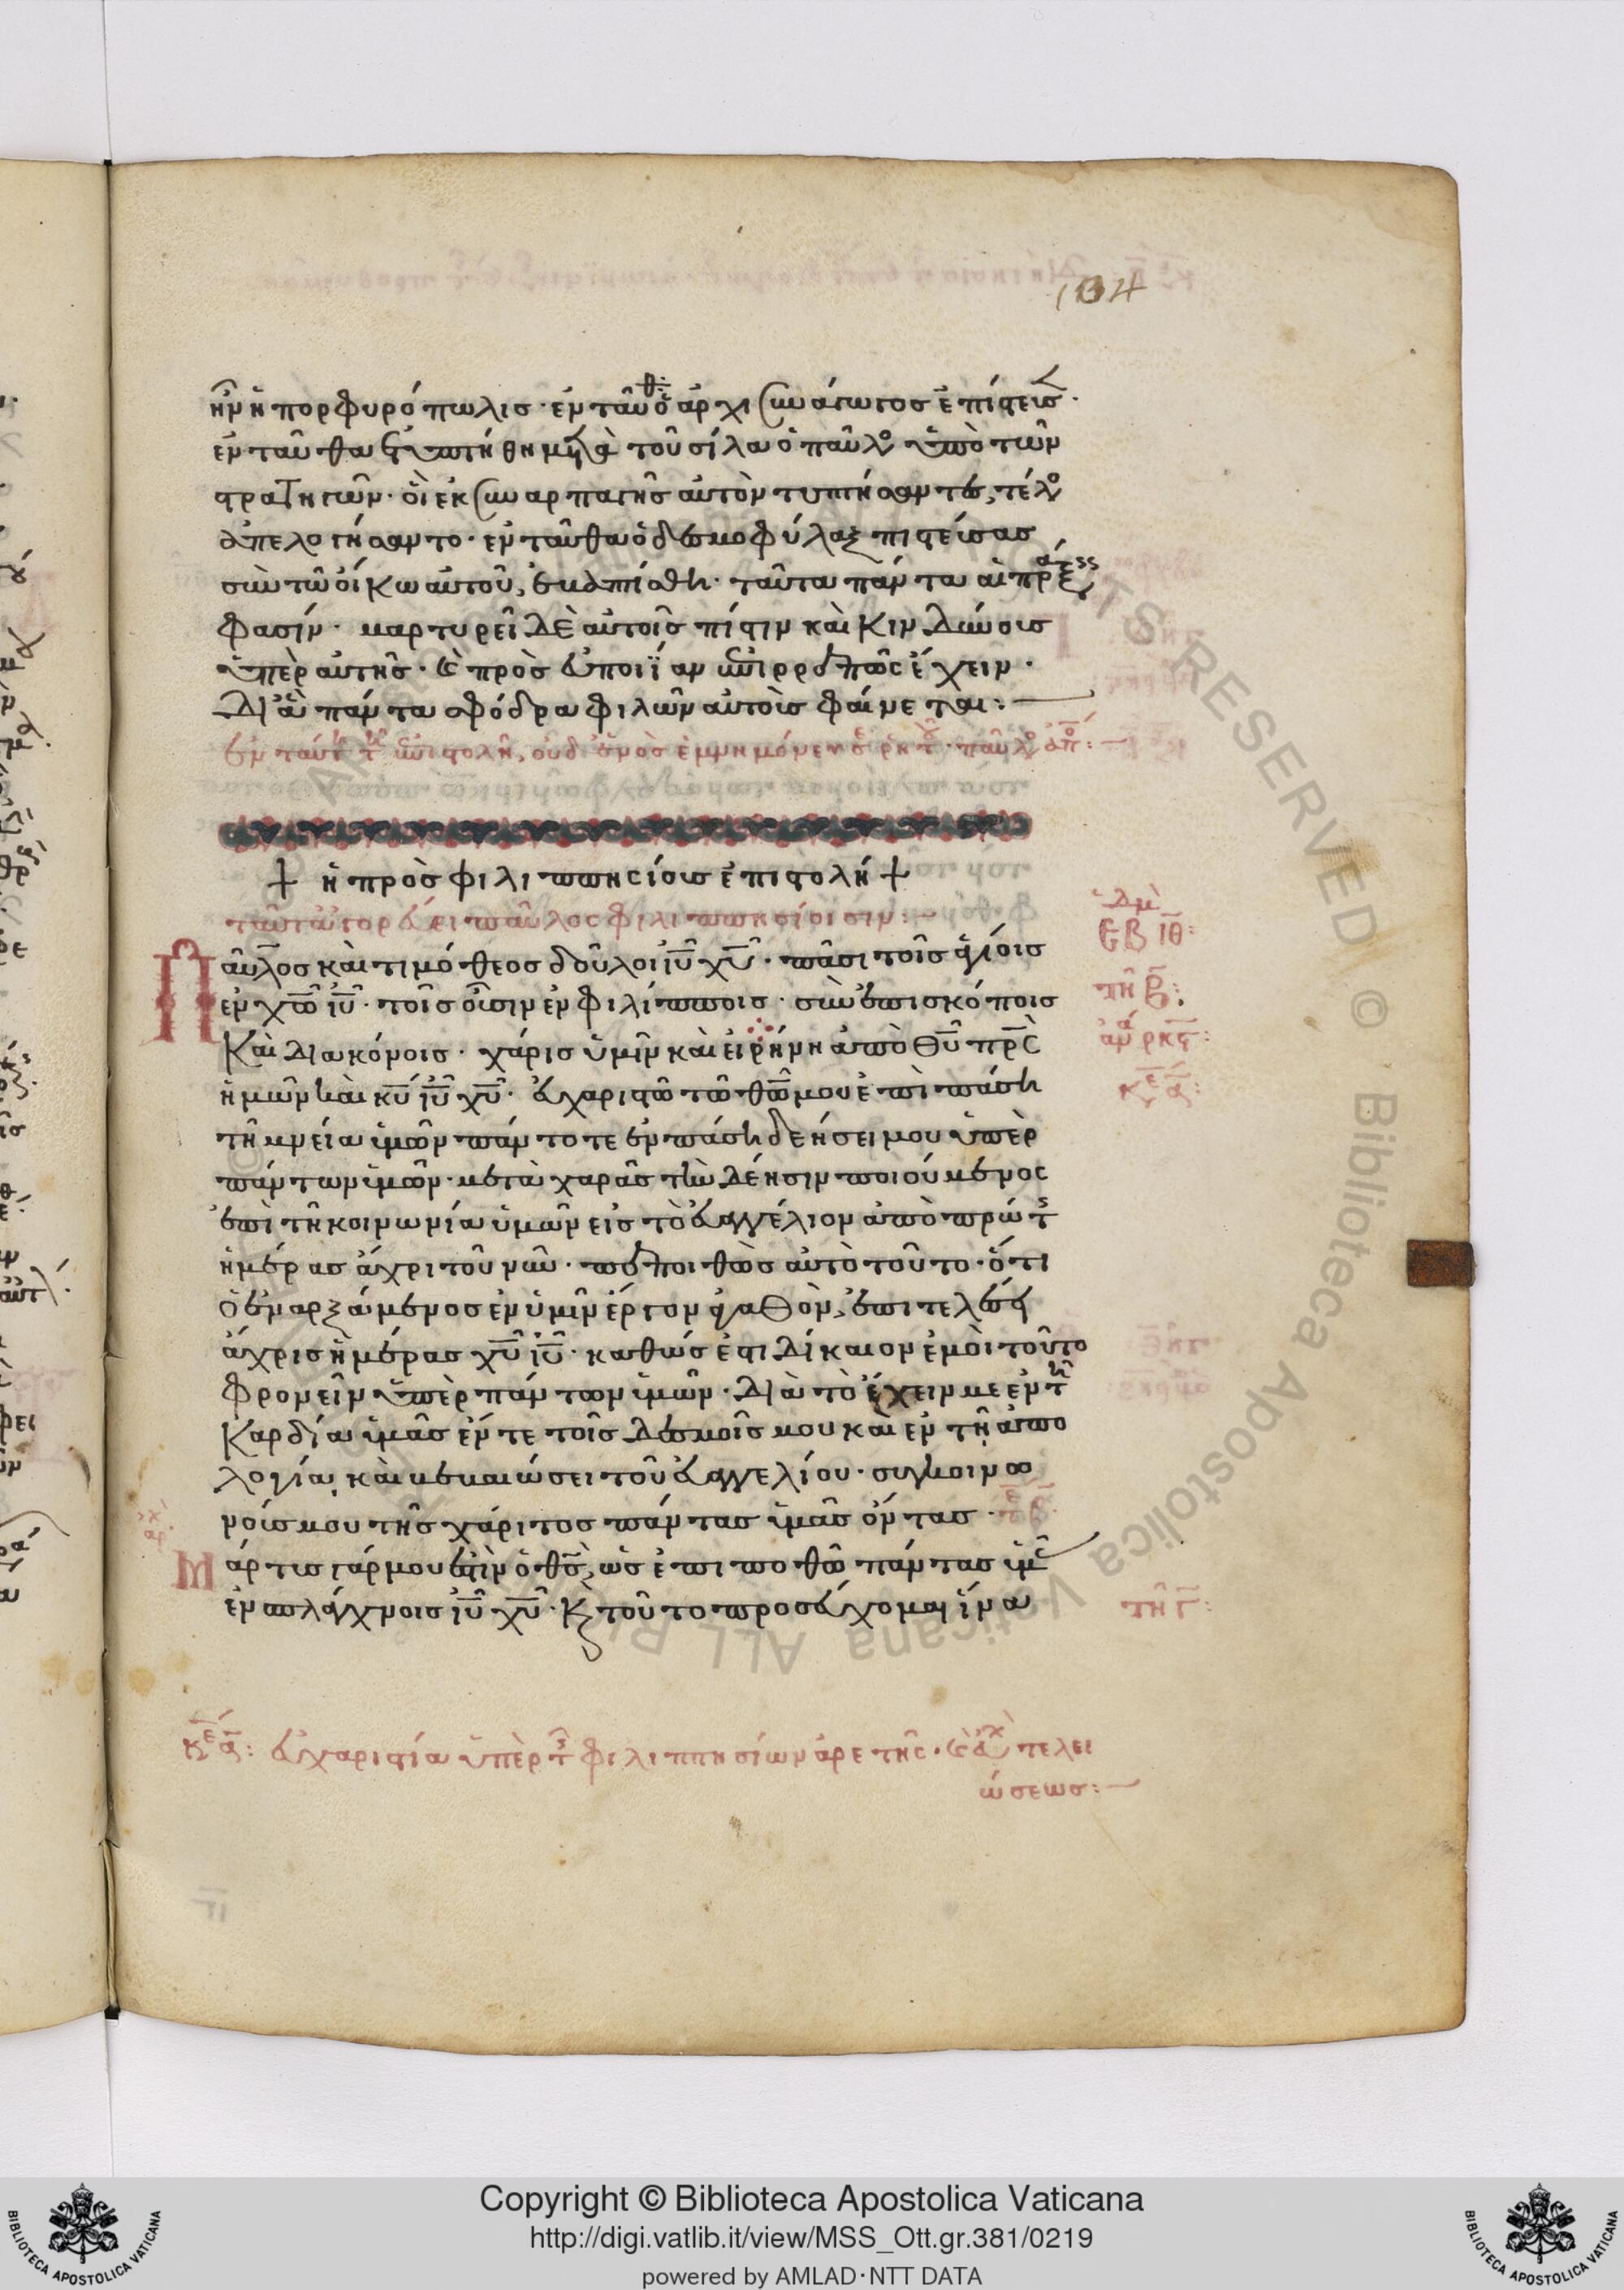 104
ἦν ἡ πορφυρόπωλις · ἐνταῦθ ὁ ἀρχισυνάγωγος ἐπίστευσ ·
ἐνταῦθα ἐτυπτήθη μετὰ τοῦ σίλα ὁ παῦλος ὑπὸ τῶν
στρατηγῶν · οἳ ἐκ συναρπαγῆς αὐτὸν τυπτήσαντες, τέλος
ἀπελογήσαντο · ἐνταῦθα ὁ δεσμοφύλαξ πιστεύσας
σὺν τῶ οἴκω αὐτοῦ, ἐβαπτίσθη · ταῦτα πάντα αἱ πράξεις
φασίν · μαρτυρεῖ δὲ αὐτοῖς πίστιν καὶ κινδύνους
ὑπὲρ αὐτῆς · καὶ πρὸς εὐποιΐαν ἐπιρρεπῶς ἔχειν ·
διὰ πάντα σφόδρα φιλῶν αὐτοὺς φαίνεται :
ἐν ταύτη τῆ ἐπιστολῆ, οὐδενὸς ἐμνημόνευσε ῥητοῦ · παῦλος ἀπό :
+ ἡ πρὸς φιλιππησίους ἐπιστολή +
παῦλος φιλιππησίοισιν :
Παῦλος καὶ τιμόθεος δοῦλοι ἰῦ χῦ · πᾶσι τοῖς ἁγίοις
ἐν χῶ ἰῦ · τοῖς οὖσιν ἐν φιλίπποις · σὺν ἐπισκόποις
καὶ διακόνοις · χάρις ὑμῖν καὶ εἰρήνη ἀπὸ θῦ πρς
ἡμῶν καὶ κῦ ἰῦ χῦ · εὐχαριστῶ τῶ θῶ μου ἐπὶ πάση
τῆ μνεία ὑμῶν πάντοτε ἐν πάση δεήσει μου ὑπὲρ
πάντων ὑμῶν · μετὰ χαρᾶς τὴν δέησιν ποιούμενος
ἐπὶ τῆ κοινωνία ὑμῶν εἰς τὸ εὐαγγέλιον ἀπὸ πρώτης
ἡμέρας ἄχρι τοῦ νῦν · πεποιθὼς αὐτὸ τοῦτο · ὅτι
ὁ ἐναρξάμενος ἐν ὑμῖν ἔργον ἀγαθὸν, ἐπιτελέσει
ἄχρις ἡμέρας χῦ ἰῦ · καθώς ἐστι δίκαιον ἐμοὶ τοῦτο
φρονεῖν ὑπὲρ πάντων ὑμῶν · διὰ τὸ ἔχειν με ἐν τῆ
καρδία ὑμᾶς ἔν τε τοῖς δεσμοῖς μου καὶ ἐν τῆ ἀπο
λογία, καὶ βεβαιώσει τοῦ εὐαγγελίου · συγκοινω
νούς μου τῆς χάριτος πάντας ὑμᾶς ὄντας ·
Μάρτυς γάρ μου ἐστὶν ὁ θς, ὡς ἐπιποθῶ πάντας ὑμᾶς
ἐν σπλάγχνοις ἰῦ χῦ · καὶ τοῦτο προσεύχομαι ἵνα
ΕΒ ΙΘ :
τῆ β :
ἀνα ρκς :
κε α :
τῆ γ :
κε α : εὐχαριστία ὑπὲρ τῆς φιλιππησίων ἀρετῆς · καὶ εὐχὴ τελει
ώσεως :
Copyright © Biblioteca Apostolica Vaticana
http://digi.vatlib.it/view/MSS_Ott.gr.381/0219
powered by AMLAD·NTT DATA
BIBLIOTECA APOSTOLICA VATICANA
BIBLIOTECA APOSTOLICA VATICANA